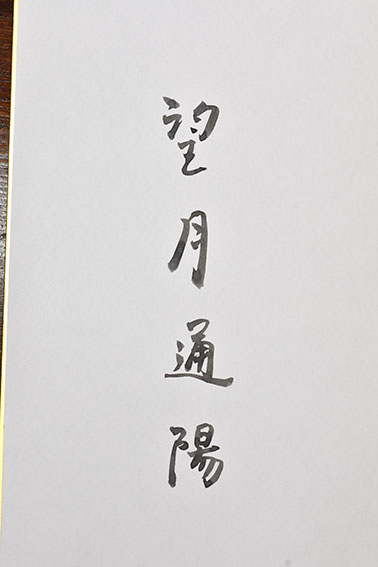 望月通陽